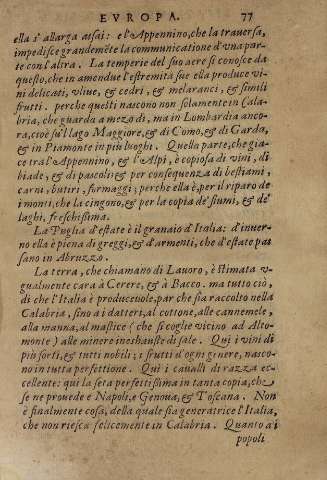 EVROPA. 77
ella s'allarga assai: e l'Appennino, che la trauersa,
impedisce grandemẽte la communicatione d'vna par
te con l'altra. La temperie del suo aere si conosce da
questo, che in amendue l'estremità sue ella produce vi
ni delicati, vliue, & cedri, & melaranci, & simili
frutti. perche questi nascono non solamente in Cala-
bria, che guarda a mezo dì, ma in Lombardia anco-
ra, cioè sù'l lago Maggiore, & di Como, & di Garda,
& in Piamonte in più luoghi. Quella parte, che gia-
ce tra l'Appennino, & l'Alpi, è copiosa di vini, di
biade, & di pascoli; & per conseguenza di bestiami,
carni, butiri, formaggi; perche ella è, per il riparo de
i monti, che la cingono, & per la copia de' fiumi, & de'
laghi, freschissima.
La Puglia d'estate è il granaio d'Italia: d'inuer-
no ella è piena di greggi, & d'armenti, che d'estate pas
sano in Abruzzo.
La terra, che chiamano di Lauoro, è stimata v-
gualmente cara à Cerere, & à Bacco. ma tutto ciò,
di che l'Italia è produceuole, par che sia raccolto nella
Calabria, sino a i datteri, al cottone, alle cannemele,
alla manna, al mastice (che si coglie vicino ad Alto-
monte) alle minere ineshauste di sale. Qui i vini di
più sorti, & tutti nobili; i frutti d'ogni genere, nasco-
no in tutta perfettione. Qui i caualli di razza ec-
cellente: qui la seta perfettissima in tanta copia, che
se ne prouede e Napoli, e Genoua, & Toscana. Non
è finalmente cosa, della quale sia generatrice l'Italia,
che non riesca felicemente in Calabria. Quanto a i
popoli